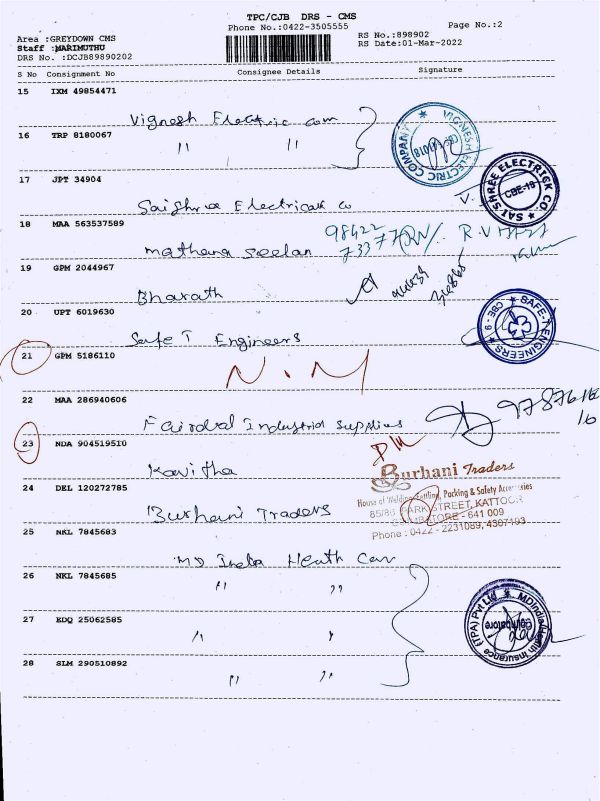 TPC/CJB DRS - CMS
Phone No.:0422-3505555
Page No.:2
Area :GREYDOWN CMS
Staff :MARIMUTHU
DRS No. :DCJB89890202
RS No.:898902
RS Date:01-Mar-2022
S No Consignment No Consignee Details Signature
15 IXM 49854471
Vignesh Electric com
16 TRP 8180067
" "
VIGNESH ELECTRIC COMPANY
17 JPT 34904
SAI SHREE ELECTRICK CO
CBE-18
Electricals Co
18 MAA 563537589
98422
mathana seelan
19 GPM 2044967
Bharath
20 UPT 6019630
Safe T Engineers
SAFE-T ENGINEERS
CBE - 9
21 GPM 5186110
N.M
22 MAA 286940606
Industrial Supplies
23 NDA 904519510
Kavitha
Burhani Traders
House of Welding, Cutting, Packing & Safety Accessories
85/86 PARK STREET, KATTOOR
COIMBATORE - 641 009
Phone : 0422 - 2231089, 4307193
24 DEL 120272785
Burhani Traders
25 NKL 7845683
MD India Heath Care
26 NKL 7845685
" "
MDIndia Health Insurance (TPA) Pvt Ltd
Coimbatore
27 EDQ 25062585
" "
28 SLM 290510892
" "